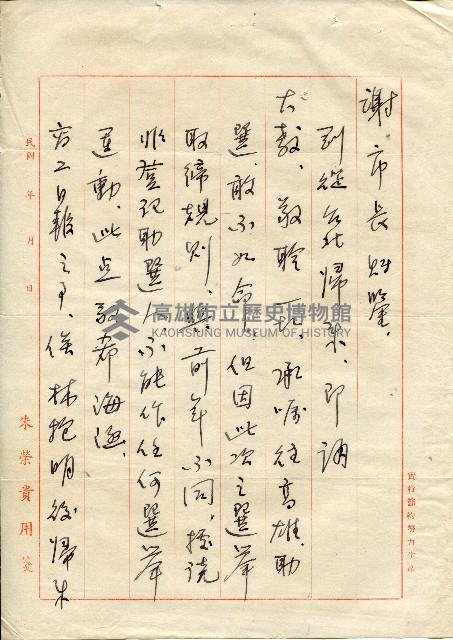 謝市長賜鑒、
到從台北歸來、即誦
大教、敬聆一切、承囑往高雄、助
選、敢不如命、但因此次之選舉
取締規則、與前年不同、據說
非登記助選人、不能作任何選舉
運動、此点設希海涵、
商工日報之事、俟林抱明後歸來
民國 年 月 日
朱榮貴用箋
實行節約努力生產
高雄市立歷史博物館
KAOHSIUNG MUSEUM OF HISTORY